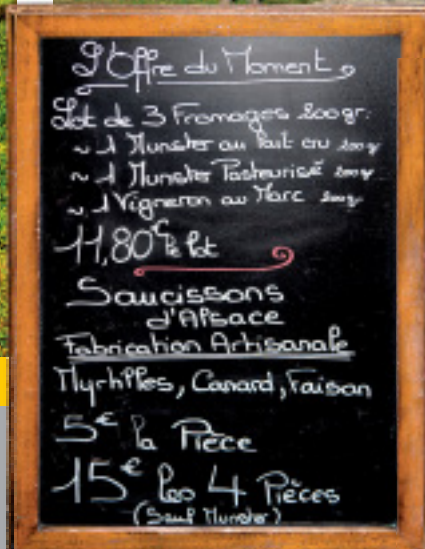 L'Offre du Moment
Lot de 3 Fromages 200gr.
~ 1 Munster au lait cru 200g
~ 1 Munster Pasteurisé 200g
~ 1 Vigneron au Marc 200g
11,80€ le lot
Saucissons
d'Alsace
Fabrication Artisanale
Myrtilles, Canard, Faisan
5€ la Pièce
15€ les 4 Pièces
(Sauf Munster)